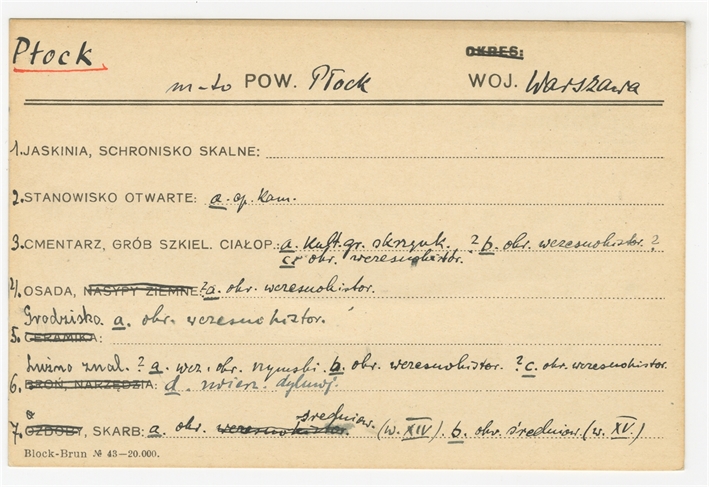 Płock
OKRES:
m-to POW. Płock WOJ. Warszawa
1. JASKINIA, SCHRONISKO SKALNE:
2. STANOWISKO OTWARTE: a. ep. kam.
3. CMENTARZ, GRÓB SZKIEL. CIAŁOP.: a. kult. gr. skrzynk. ? b. okr. wczesnohistor. ?
c. okr. wczesnohistor.
4. OSADA, NASYPY ZIEMNE: ? a. okr. wczesnohistor.
Grodzisko. a. okr. wczesnohistor.
5. CERAMIKA:
Luźno znal. ? a. wcz. okr. rzymski. b. okr. wczesnohistor. ? c. okr. wczesnohistor.
6. BROŃ, NARZĘDZIA: d. zwierz. dyluwj.
średniow.
7. OZDOBY, SKARB: a. okr. wczesnohistor. (w. XIV). b. okr. średniow. (w. XV.)
Block-Brun № 43—20.000.